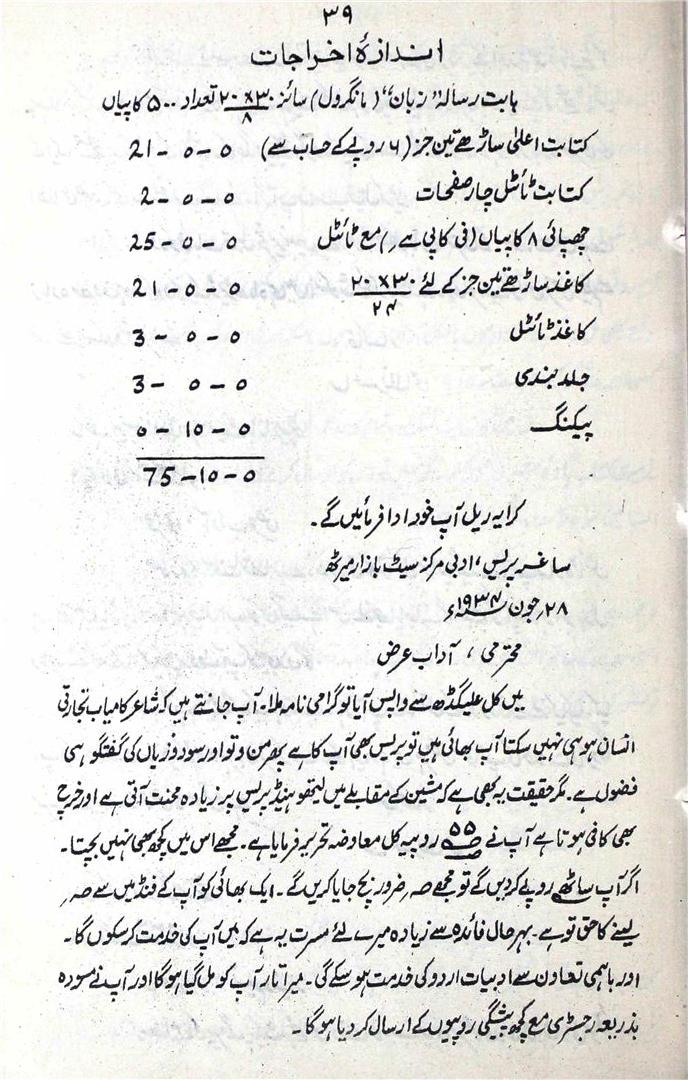 ۳۹
اندازۂ اخراجات
بابت رسالہ ”زبان“ (مانگرول) سائز ۲۰x۳۰/۸ تعداد ۵۰۰ کاپیاں
کتابت اعلیٰ ساڑھے تین جز (۶ روپے کے حساب سے) 21-0-0
کتابت ٹائٹل چار صفحات 2-0-0
چھپائی ۸ کاپیاں (فی کاپی ) مع ٹائٹل 25-0-0
کاغذ ساڑھے تین جز کے لئے ۲۰x۳۰/۲۴ 21-0-0
کاغذ ٹائٹل 3-0-0
جلد بندی 3-0-0
پیکنگ 0-10-0
75-10-0
کرایہ ریل آپ خود ادا فرمائیں گے۔
ساغر پریس، ادبی مرکز سیٹ بازار میرٹھ
۲۸؍جون ۱۹۳۴ء
محترمی، آداب عرض
میں کل علیگڈھ سے واپس آیا تو گرامی نامہ ملا۔ آپ جانتے ہیں کہ شاعر کامیاب تجارتی
انسان ہو ہی نہیں سکتا آپ بھائی ہیں تو پریس بھی آپ کا ہے پھر من و تو اور سود و زیاں کی گفتگو ہی
فضول ہے۔ مگر حقیقت یہ بھی ہے کہ مشین کے مقابلے میں لیتھو ہینڈ پریس پر زیادہ محنت آتی ہے اور خرچ
بھی کافی ہوتا ہے آپ نے ۵۵ روپیہ کل معاوضہ تحریر فرمایا ہے۔ مجھے اس میں کچھ بھی نہیں بچتا۔
اگر آپ ساٹھ روپے کر دیں گے تو مجھے صہ ضرور بچ جایا کریں گے۔ ایک بھائی کو آپ کے فنڈ میں سے صہ
لینے کا حق تو ہے۔ بہرحال فائدہ سے زیادہ میرے لئے مسرت یہ ہے کہ میں آپ کی خدمت کر سکوں گا۔
اور باہمی تعاون سے ادبیات اردو کی خدمت ہو سکے گی۔ میرا تار آپ کو مل گیا ہوگا اور آپ نے مسودہ
بذریعہ رجسٹری مع کچھ پیشگی روپیوں کے ارسال کر دیا ہوگا۔